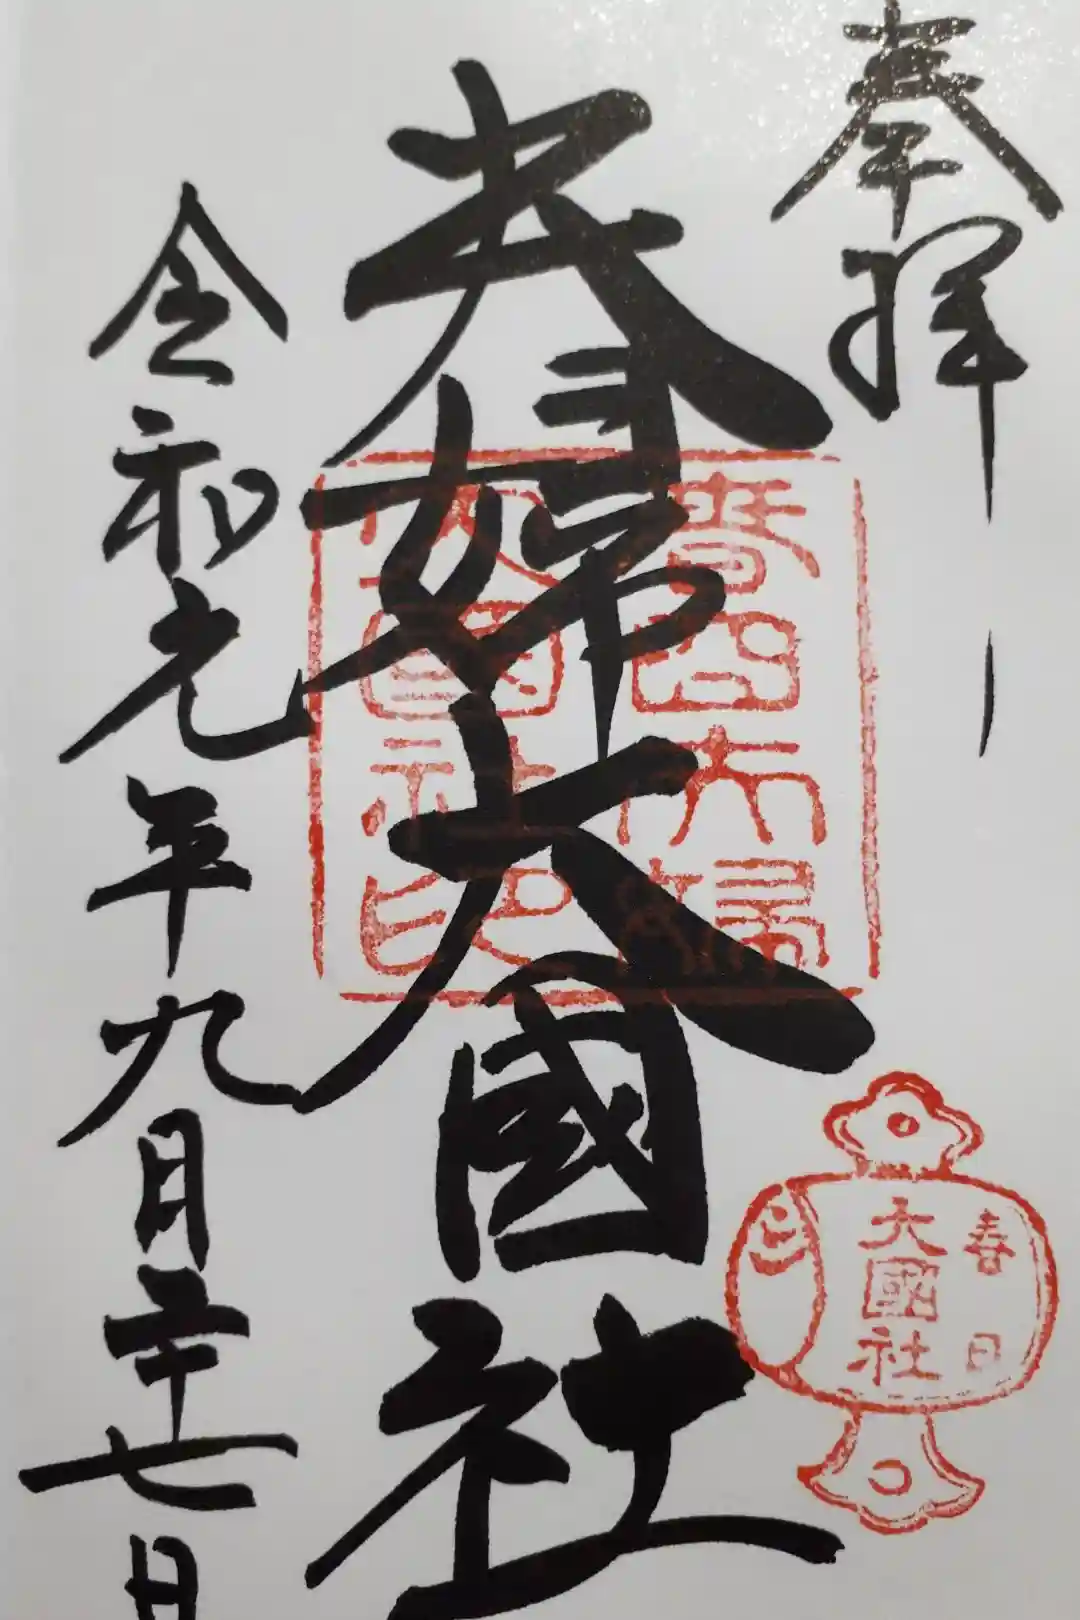 奉拝
夫婦大國社
春日夫婦
大國社印
春日
大國社
令和元年九月二十七日